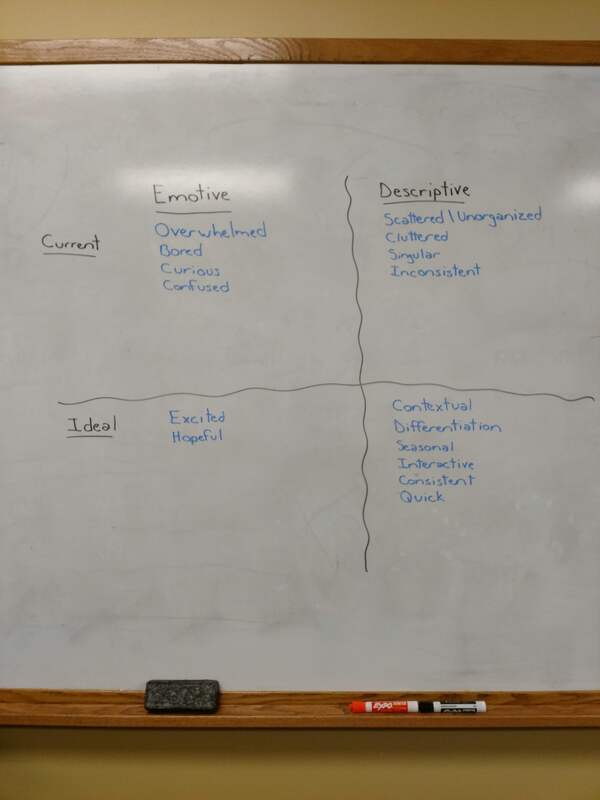 Emotive
Descriptive
Current
Overwhelmed
Bored
Curious
Confused
Scattered\Unorganized
Cluttered
Singular
Inconsistent
Ideal
Excited
Hopeful
Contextual
Differentiation
Seasonal
Interactive
Consistent
Quick
EXPO